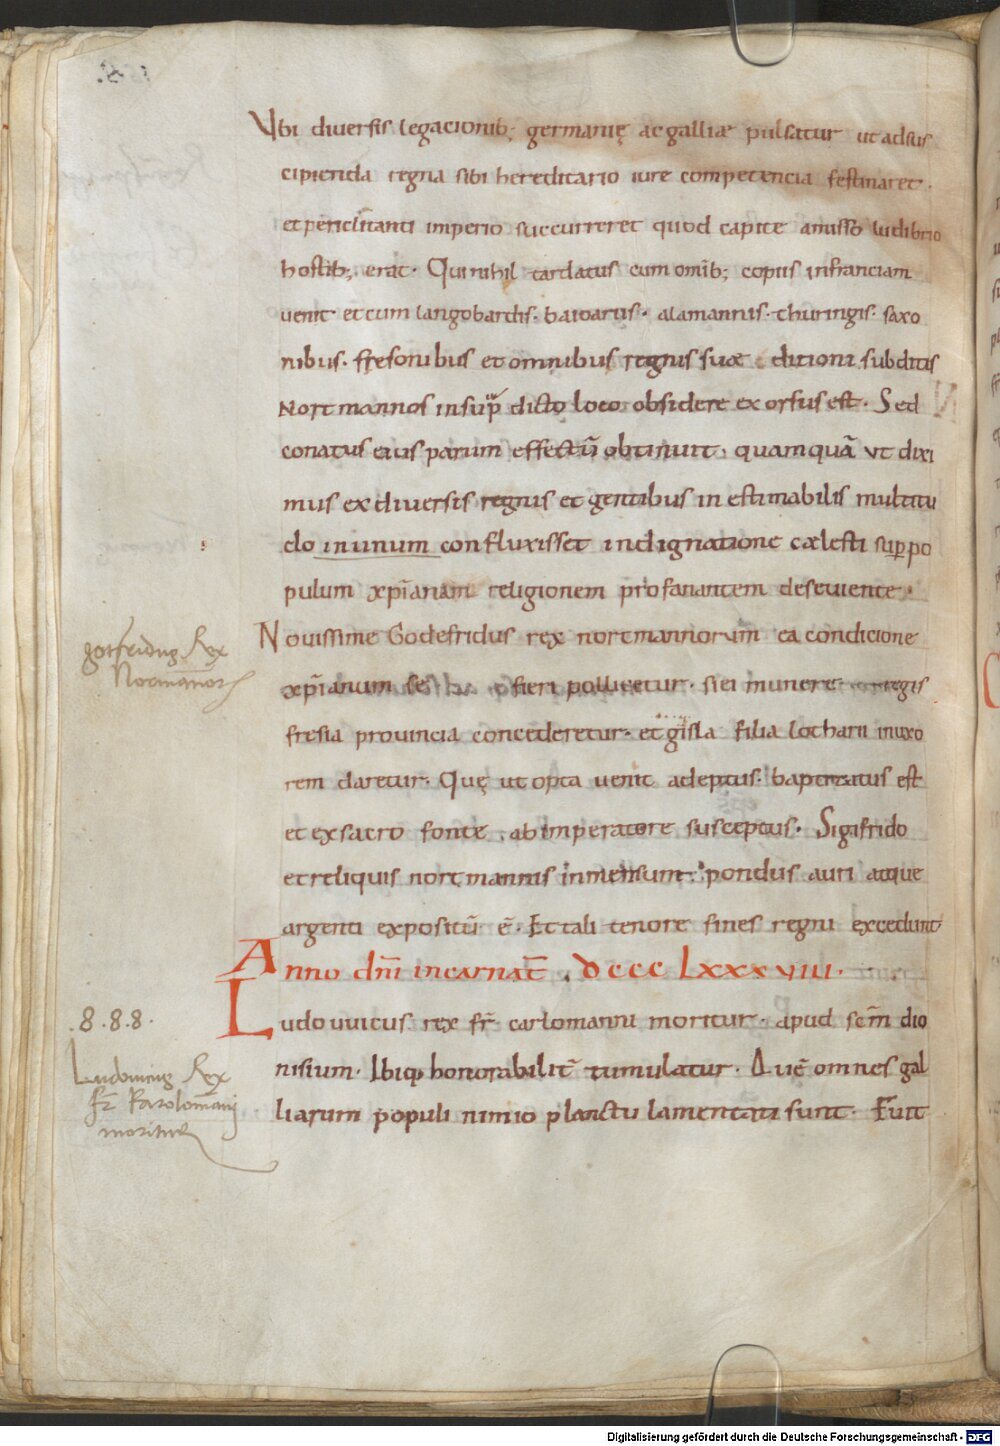 Vbi diuersis legacionib; germanię ac galliæ pulsatur ut adsus
cipienda regna sibi hereditario iure competencia festinaret.
et periclitanti imperio succurreret quod capite amisso ludibrio
hostib; erat. Qui nihil tardatus cum omib; copiis in franciam
uenit et cum langobardis. baioariis. alamannis. thuringis. saxo
nibus. fresonibus et omnibus regnis suæ ditioni subditis
Nortmannos in sup̄ dicto loco obsidere exorsus est. Sed
conatus eius parum effectū obtinuit. quamquā ut dixi
mus ex diuersis regnis et gentibus inestimabilis multitu
do in unum confluxisset indignatione cælesti sup po
pulum xp̄ianam religionem profanantem deseuiente.
Nouissime Godefridus rex nortmannorum ea condicione
xp̄ianum se fieri pollicetur. si ei munere regis
fresia prouincia concederetur. et gisla filia lotharii in uxo
rem daretur. Quę ut optauenit adeptus. baptizatus est
et ex sacro fonte ab imperatore susceptus. Sigifrido
et reliquis nortmannis inmensum pondus auri atque
argenti expositū ē. Et tali tenore fines regni excedunt
Anno dn̄i incarnat̄. DCCC LXXXVIII.
Ludouuicus rex fr̄ carlomanni moritur. apud sc̄m dio
nisium. Ibiq; honorabilit̄ tumulatur. Quē omnes gal
liarum populi nimio planctu lamentati sunt. Fuit
gotfridus Rex
Normānor
.8.8.8.
Ludouicus Rex
fr̄ Karolomanni
moritur
Digitalisierung gefördert durch die Deutsche Forschungsgemeinschaft - DFG